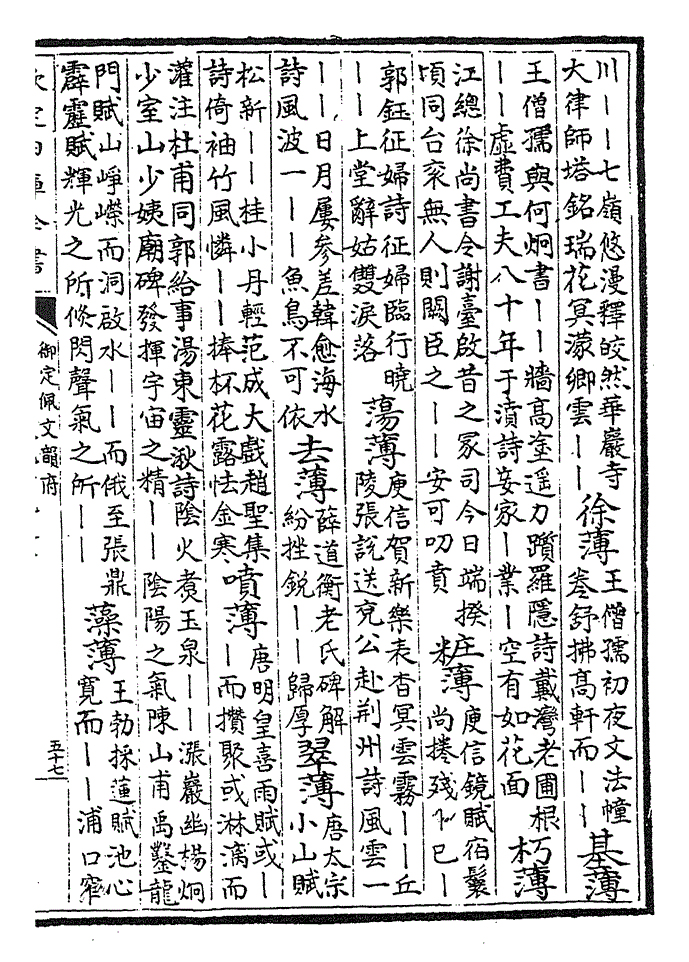 川――七嶺悠漫釋皎然華嚴寺
大律師塔銘瑞花冥濛卿雲――
徐薄
王僧孺初夜文法幢
卷舒拂髙軒而――
基薄
王僧孺與何炯書――牆高塗遥力躓羅隱詩戴灣老圃根
――虛費工夫八十年于濆詩妾家―業―空有如花面
朽薄
江總徐尚書令謝臺啟昔之冢司今日端揆
頃同台衮無人則闕臣之――安可叨賁
粧薄
庾信鏡賦宿鬟
尚捲殘―已―
郭鈺征婦詩征婦臨行曉
――上堂辭姑雙淚落
蕩薄
庾信賀新樂表杳冥雲霧――丘
陵張説送兖公赴荆州詩風雲一
――日月屢參差韓愈海水
詩風波一――魚鳥不可依
去薄
薛道衡老氏碑解
紛挫銳――歸厚
翠薄
唐太宗
小山賦
松新――桂小丹輕范成大戲趙聖集
詩倚袖竹風憐――捧杯花露怯金寒
噴薄
唐明皇喜雨賦或―
―而攢聚或淋漓而
灌注杜甫同郭給事湯東靈湫詩陰火煮玉泉――漲巖幽楊炯
少室山少姨廟碑發揮宇宙之精――陰陽之氣陳山甫禹鑿龍
門賦山崢嶸而洞啟水――而俄至張鼎
霹靂賦輝光之所倏閃聲氣之所――
藻薄
王勃採蓮賦池心
寛而――浦口窄
欽定四庫全書
御定佩文韻府
五十七